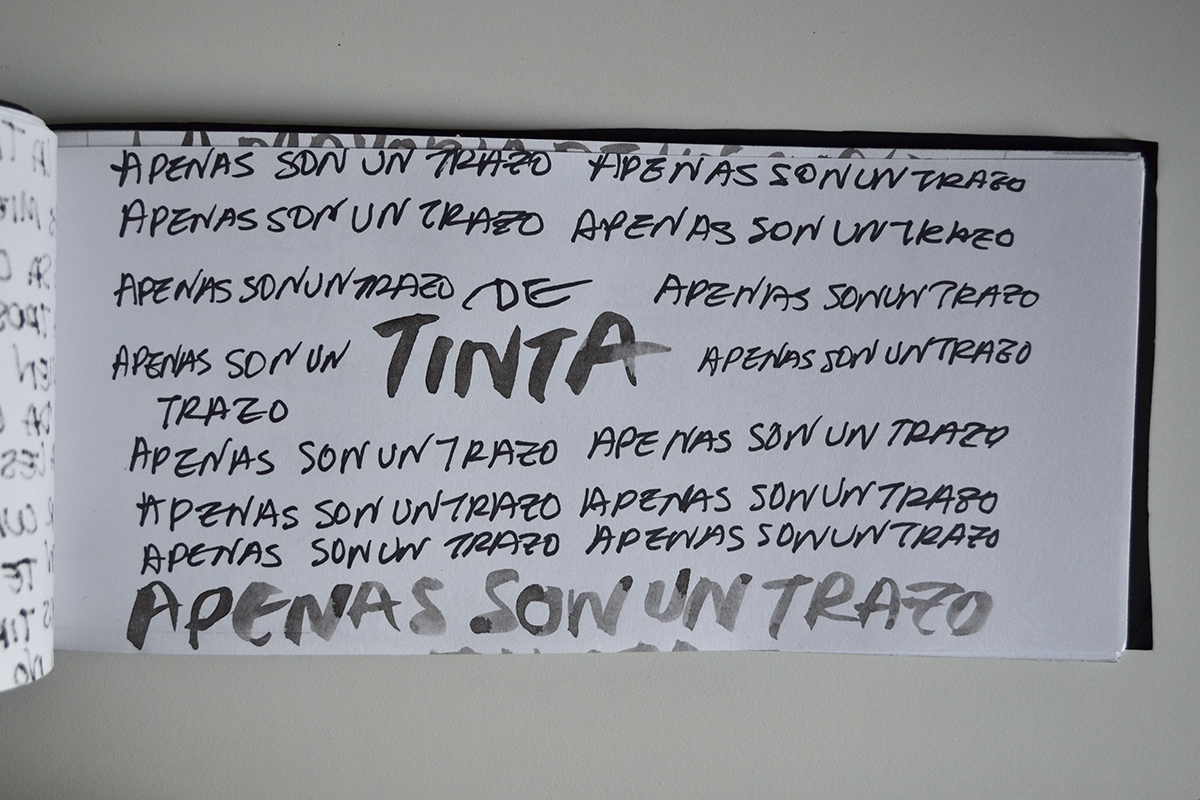 APENAS SON UN TRAZO APENAS SON UN TRAZO
APENAS SON UN TRAZO APENAS SON UN TRAZO
APENAS SON UN TRAZO DE APENAS SON UN TRAZO
APENAS SON UN TINTA APENAS SON UN TRAZO
TRAZO
APENAS SON UN TRAZO APENAS SON UN TRAZO
APENAS SON UN TRAZO APENAS SON UN TRAZO
APENAS SON UN TRAZO APENAS SON UN TRAZO
APENAS SON UN TRAZO